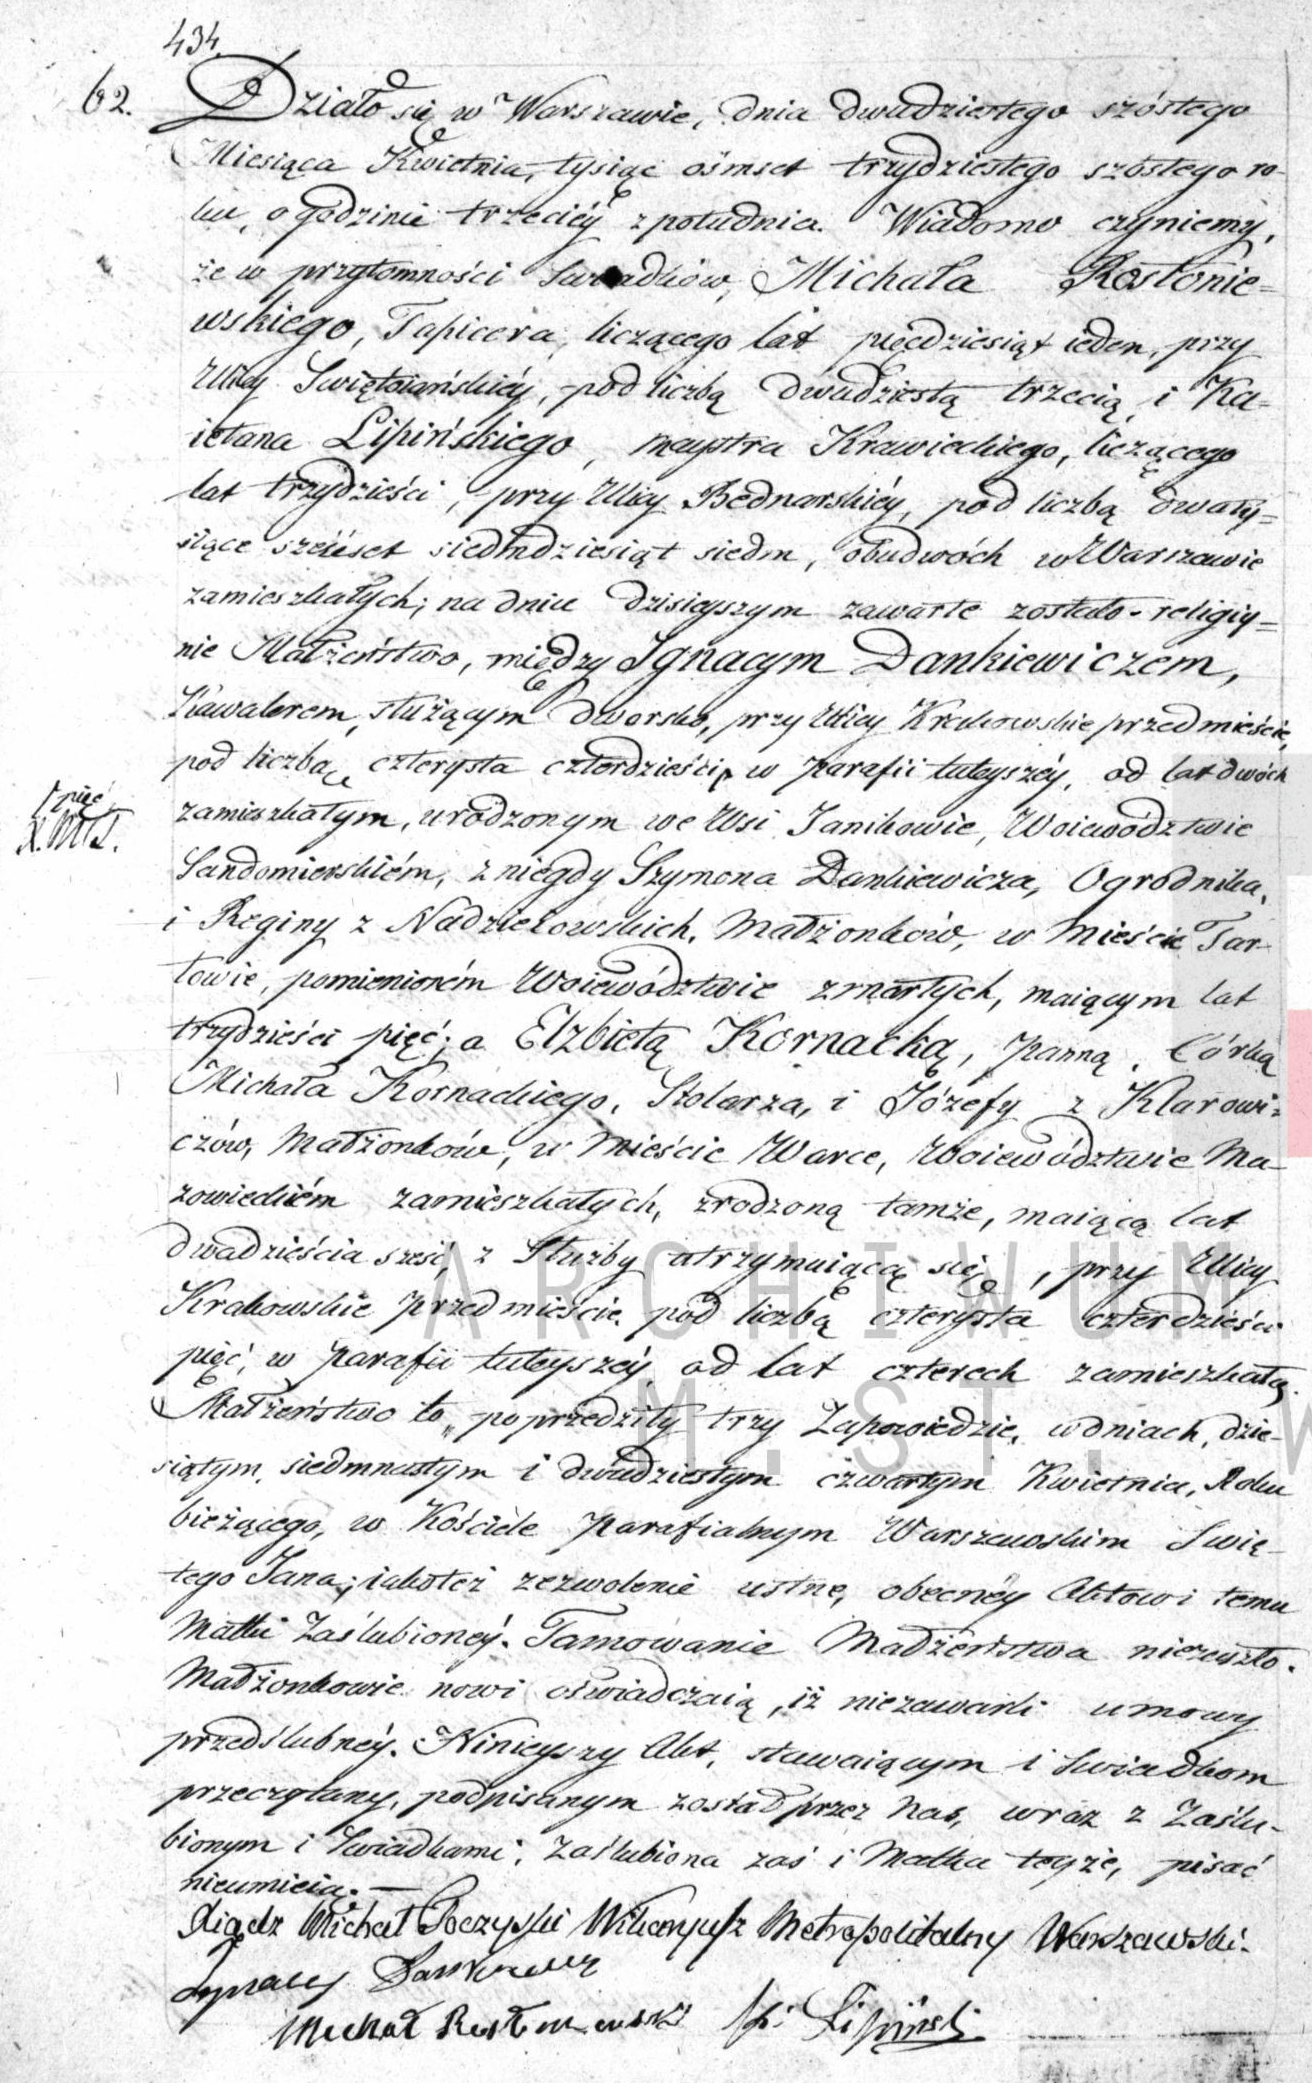 434.
62. Działo się w Warszawie, dnia dwudziestego szóstego
Miesiąca Kwietnia, tysiąc ośmset trzydziestego szóstego ro-
ku, o godzinie trzeciéy z południa. Wiadomo czyniemy,
że w przytomności Swiadków, Michała Rosłonie=
wskiego, Tapicera, liczącego lat pięcdziesiąt ieden, przy
Ulicy Swiętoiańskiéy, pod liczbą dwudziestą trzecią, i Ka-
ietana Lipińskiego, maystra Krawieckiego, liczącego
lat trzydzieści, przy Ulicy Bednarskiéy, pod liczbą dwaty=
siące sześćset siedmdziesiąt siedm, obudwóch w Warszawie
zamieszkałych; na dniu dzisieyszym zawarte zostało religiy=
nie Małżeństwo, między Ignacym Dankiewiczem,
Kawalerem, służącym dworsko, przy Ulicy Krakowskie przedmieście,
pod liczbą czterysta czterdzieści, w Parafii tuteyszéy, od lat dwóch
pięć
X. M. S.
zamieszkałym, urodzonym we Wsi Janikowie, Woiewództwie
Sandomierskiém, z niegdy Szymona Dankiewicza, Ogrodnika,
i Reginy z Nadzieiowskich, Małżonków, w Mieście Tar-
łowie, pomienioném Woiewództwie zmarłych, maiącym lat
trzydzieści pięć; a Elzbietą Kornacką, Panną, Córką
Michała Kornackiego, Stolarza, i Józefy z Klarowi=
czów, Małżonków, w Mieście Warce, Woiewództwie Ma-
zowieckiém zamieszkałych, zrodzoną tamże, maiącą lat
dwadzieścia sześć, z Służby utrzymuiącą się, przy Ulicy
Krakowskie Przedmieście pod liczbą czterysta czterdzieści
pięć, w Parafii tuteyszéy od lat czterech zamieszkałą.
Małżeństwo to, poprzedziły trzy Zapowiedzie, w dniach, dzie-
siątym, siedmnastym i dwudziestym czwartym Kwietnia, Roku
bieżącego, w Kościele Parafialnym Warszawskim Swię-
tego Jana; iakoteż zezwolenie ustne, obecnéy Aktowi temu
Matki Zaślubionéy. Tamowanie Małżeństwa niezaszło.
Małżonkowie nowi oświadczaią, iż niezawarli umowy
przedślubnéy. Ninieyszy Akt, stawaiącym i Swiadkom
przeczytany, podpisanym został przez Nas, wraz z Zaślu-
bionym i Swiadkami, Zaślubiona zaś i Matka teyże, pisać
nieumieią.
Xiądz Michał Wikaryusz Metropolitalny Warszawski.
Ignacy Dankiewicz
Michał Rosłoniewski Lipiński
ARCHIWUM
M. ST. W